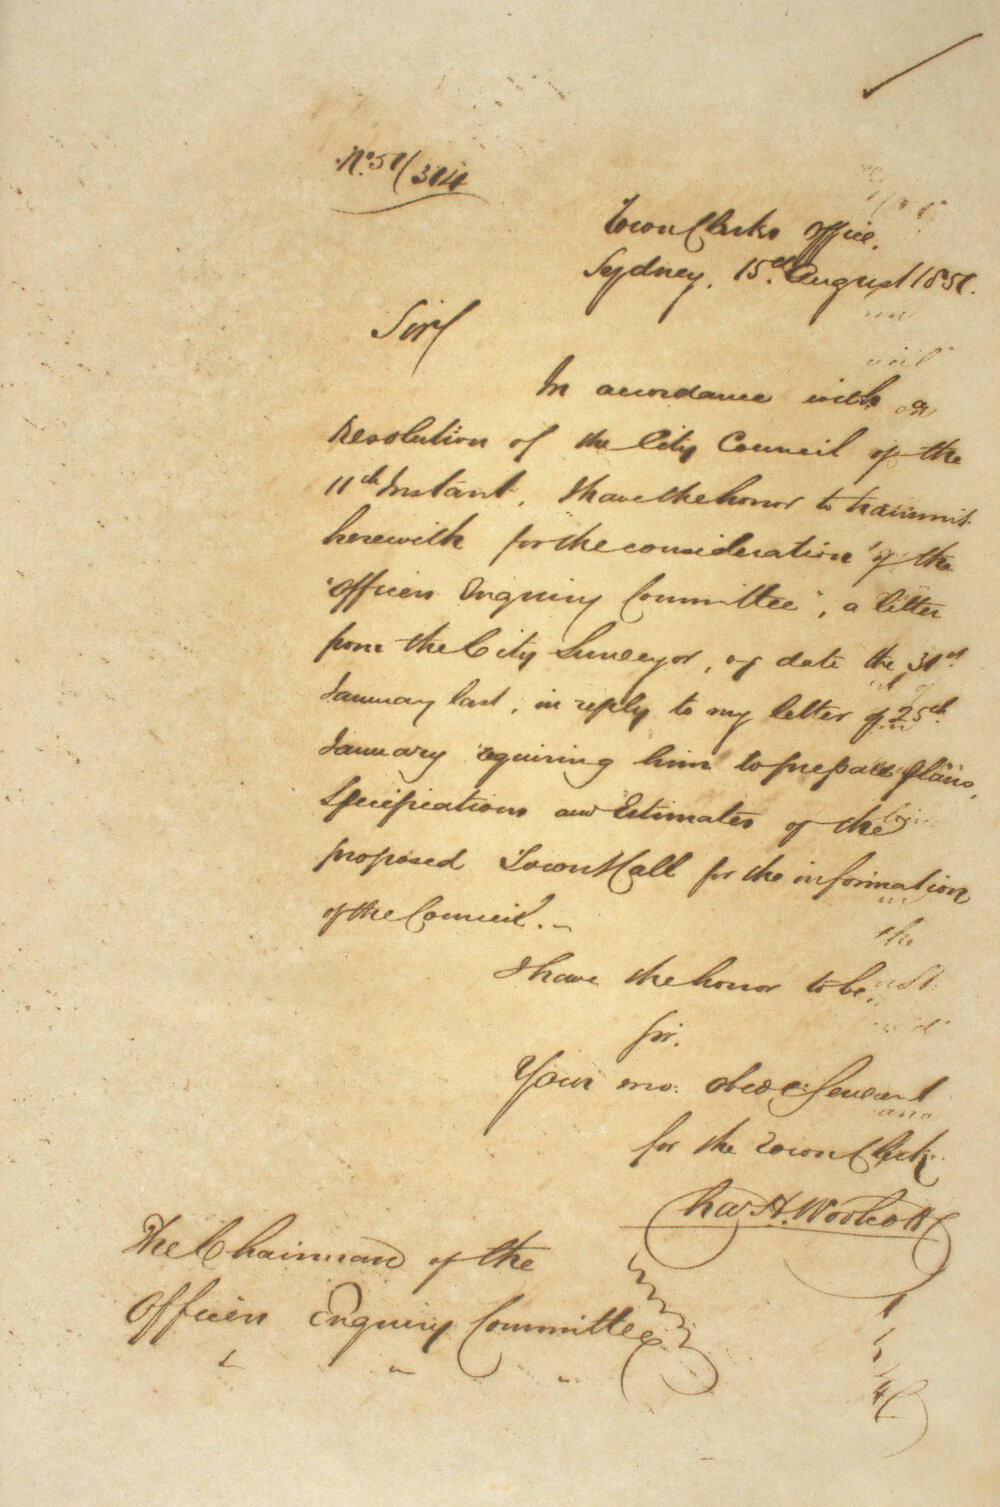 No. 51/314
Town Clerks Office.
Sydney, 15th August 1851.
Sir
In accordance with a
Resolution of the City Council of the
11th Instant, I have the honor to transmit
herewith for the consideration of the
"Officers Enquiry Committee", a letter
from the City Surveyor, of date the 31st
January last, in reply to my letter of 25th
January requiring him to prepare Plans,
Specifications and Estimates of the
proposed Town Hall for the information
of the Council.
I have the honor to be,
Sir,
Your mo: obedt. Servant
for the Town Clerk
Chas H. Woolcott
The Chairman of the
Officers Enquiry Committee